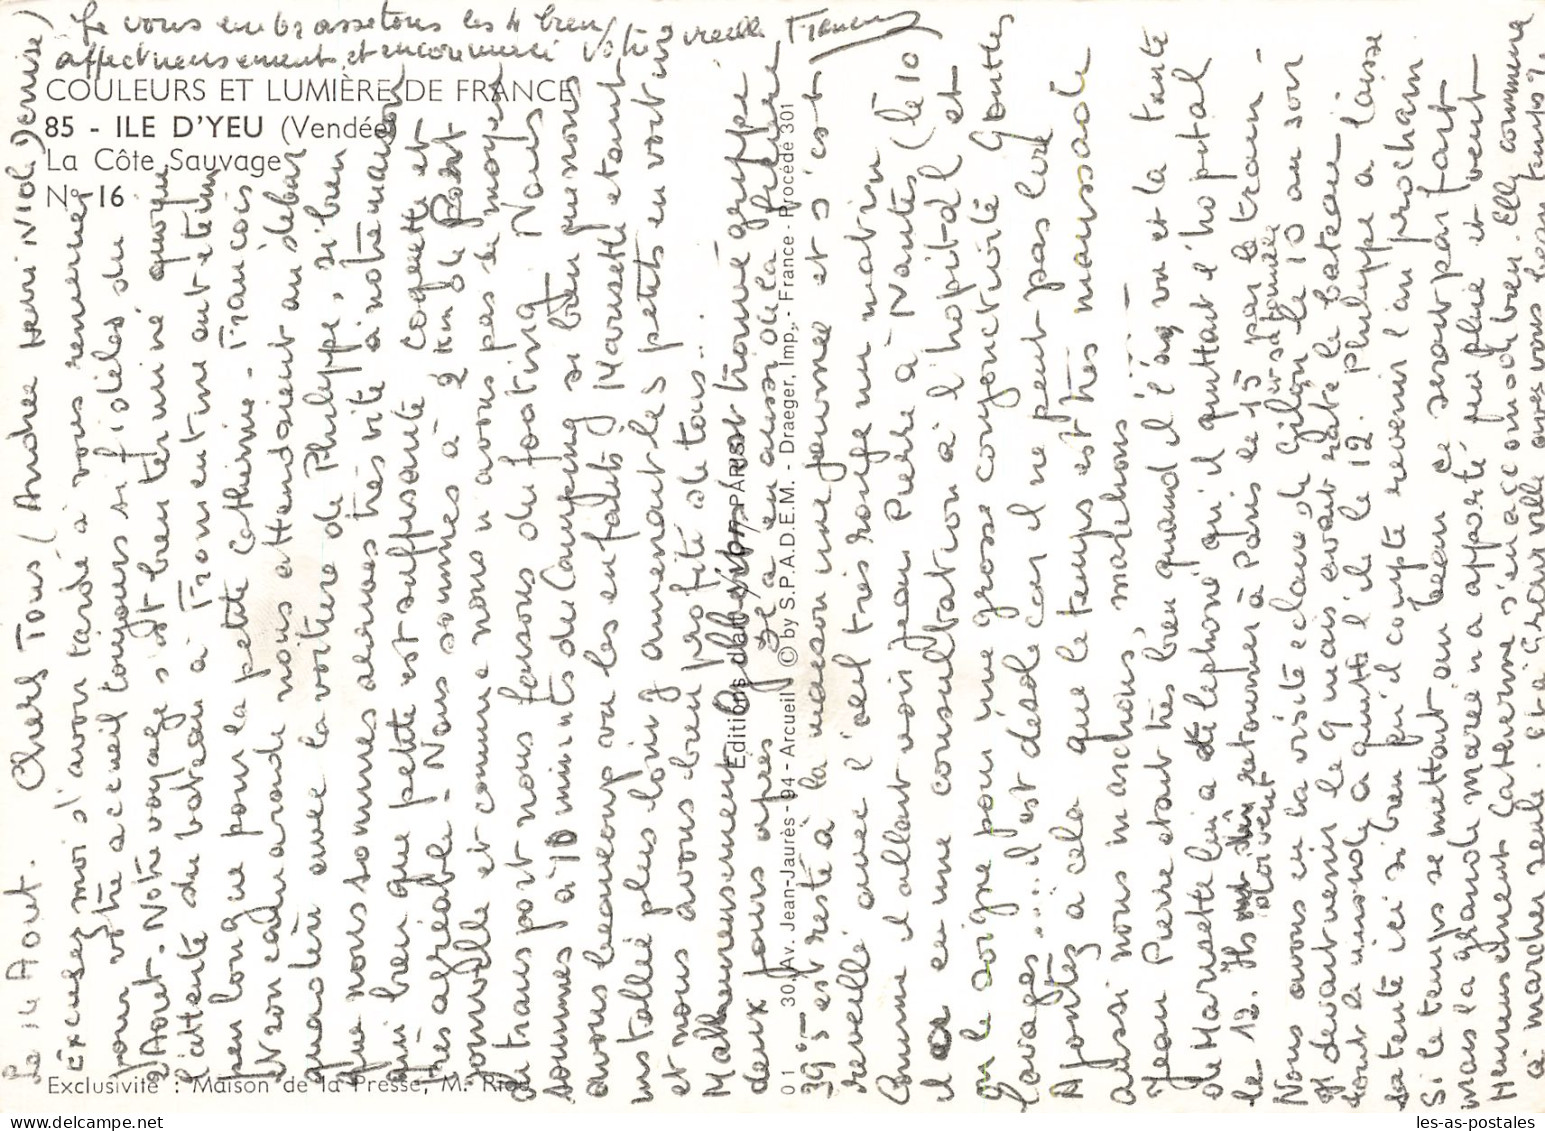 Je vous embrasse tous les 4 bien
affectueusement et encore merci votre vieille
COULEURS ET LUMIÈRE DE FRANCE
85 - ILE D'YEU (Vendée)
La Côte Sauvage
N° 16
Editions d'art PARIS
01 30, Av. Jean-Jaurès - 94 - Arcueil © by S.P.A.D.E.M. - Draeger, Imp., - France - Procédé 301
Exclusivité : Maison de la Presse, M.
le 14 Aout. Chers Tous (Andrée Henri Nicole Denise)
Excusez moi d'avoir tardé à vous remercier
pour votre accueil toujours si fidèle du
2 Aout. Notre voyage s'est bien terminé quoique
l'attente du bateau à Fromentine ait été un
peu longue pour la petite Catherine - François
Nron cadu aronde nous attendaient au débar
quadère avec la voiture de Philippe, si bien
que nous sommes arrivés très vite à notre maison
qui bien que petite est suffisante coquette et
très agréable - Nous sommes à 2 km de Port
Joinville et comme nous n'avons pas de moyen
de transport nous faisons du footing Nous
sommes à 10 minutes du Camping si bien que nous
avons beaucoup vu les enfants Marsette etant
installé plus loin amenant les petits en voiture
et nous avons bien profité de tous..
Malheureusement grippe
deux jours apres j'ai eu aussi de la fièvre
39°5 resté à la maison une journée et s'est
reveillé avec l'œil très rouge un matin
Comme il allait voir Jean Pierre à Nantes (le 10
il a eu une consultation à l'hopital et
on le soigne pour une grosse conjonctivité Gouttes
lavages... il est désolé car il ne peut pas lire
Ajoutez à cela que le temps est très maussade
aussi nous marchons, marchons -
Jean Pierre etait très bien quand il l'a vu et la tante
de Marsette lui a téléphoné qu'il quittait l'hopital
le 12. Ils doivent retourner à Paris le 15 par le train -
Nous avons eu la visite eclair de Gilou le 10 au soir
Il devait venir le 9 mais avait raté le bateau -
tout le monde a quitté l'ile le 12. Philippe a laissé
sa tente ici si bien qu'il compte revenir l'an prochain
Si le temps se mettait au beau ce serait parfait
mais la grande marée n'a apporté que pluie et vent
Heureusement Catherine s'en accomode bien. Elle commence
à marcher seule. avez vous beau temps ?